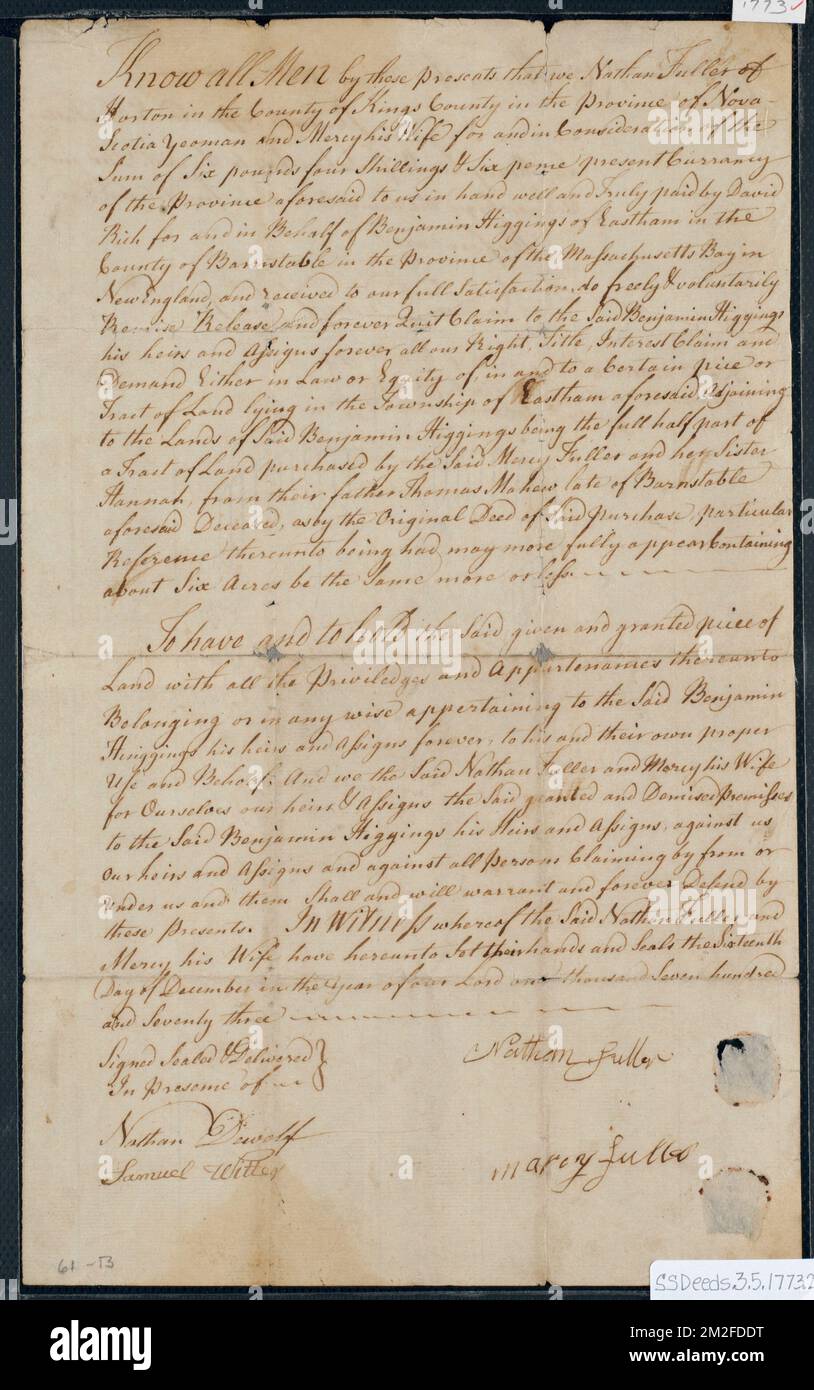 1773
Know all Men by these presents that we Nathan Fuller of
Horton in the County of Kings County in the Province of Nova-
Scotia Yeoman and Mercy his Wife for and in Consideration of the
Sum of Six pounds four Shillings & Six pence present Currancy
of the Province aforesaid to us in hand well and Truly paid by David
Rich for and in Behalf of Benjamin Higgings of Eastham in the
County of Barnstable in the Province of the Massachusetts Bay in
New England, and received to our full Satisfaction, do freely & voluntarily
Remise Release and forever Quit Claim to the Said Benjamin Higgings
his heirs and Assigns forever all our Right, Title, Interest Claim and
Demand Either in Law or Equity of, in and to a Certain piece or
Tract of Land lying in the Township of Eastham aforesaid Adjoining
to the Lands of Said Benjamin Higgings being the full half part of
a Tract of Land purchased by the Said Mercy Fuller and her Sister
Hannah, from their father Thomas Mahew late of Barnstable
aforesaid Deceased, as by the Original Deed of Said purchase, particular
Reference thereunto being had may more fully appear Containing
about Six Acres be the Same more or less.
To have and to hold the Said given and granted piece of
Land with all the Priviledges and Appartenances thereunto
Belonging or in any wise appertaining to the Said Benjamin
Higgings his heirs and Assigns forever, to his and their own proper
Use and Behoof. And we the Said Nathan Fuller and Mercy his Wife
for Ourselves our heirs & Assigns the Said granted and Demised Premisses
to the Said Benjamin Higgings his Heirs and Assigns, against us
our heirs and Assigns and against all persons Claiming by from or
under us and them Shall and will warrant and forever Defend by
these Presents. In Witness whereof the Said Nathan Fuller and
Mercy his Wife have hereunto Set their hands and Seals the Sixteenth
Day of December in the Year of our Lord one thousand Seven hundred
and Seventy three
Signed Sealed & Delivered
In Presence of
Nathan Fuller
Nathan Dewolf
Samuel Witter
marcy fuller
61-53
SSDeeds.3.5.1773.2
alamy
Image ID: 2M2FDDT
www.alamy.com